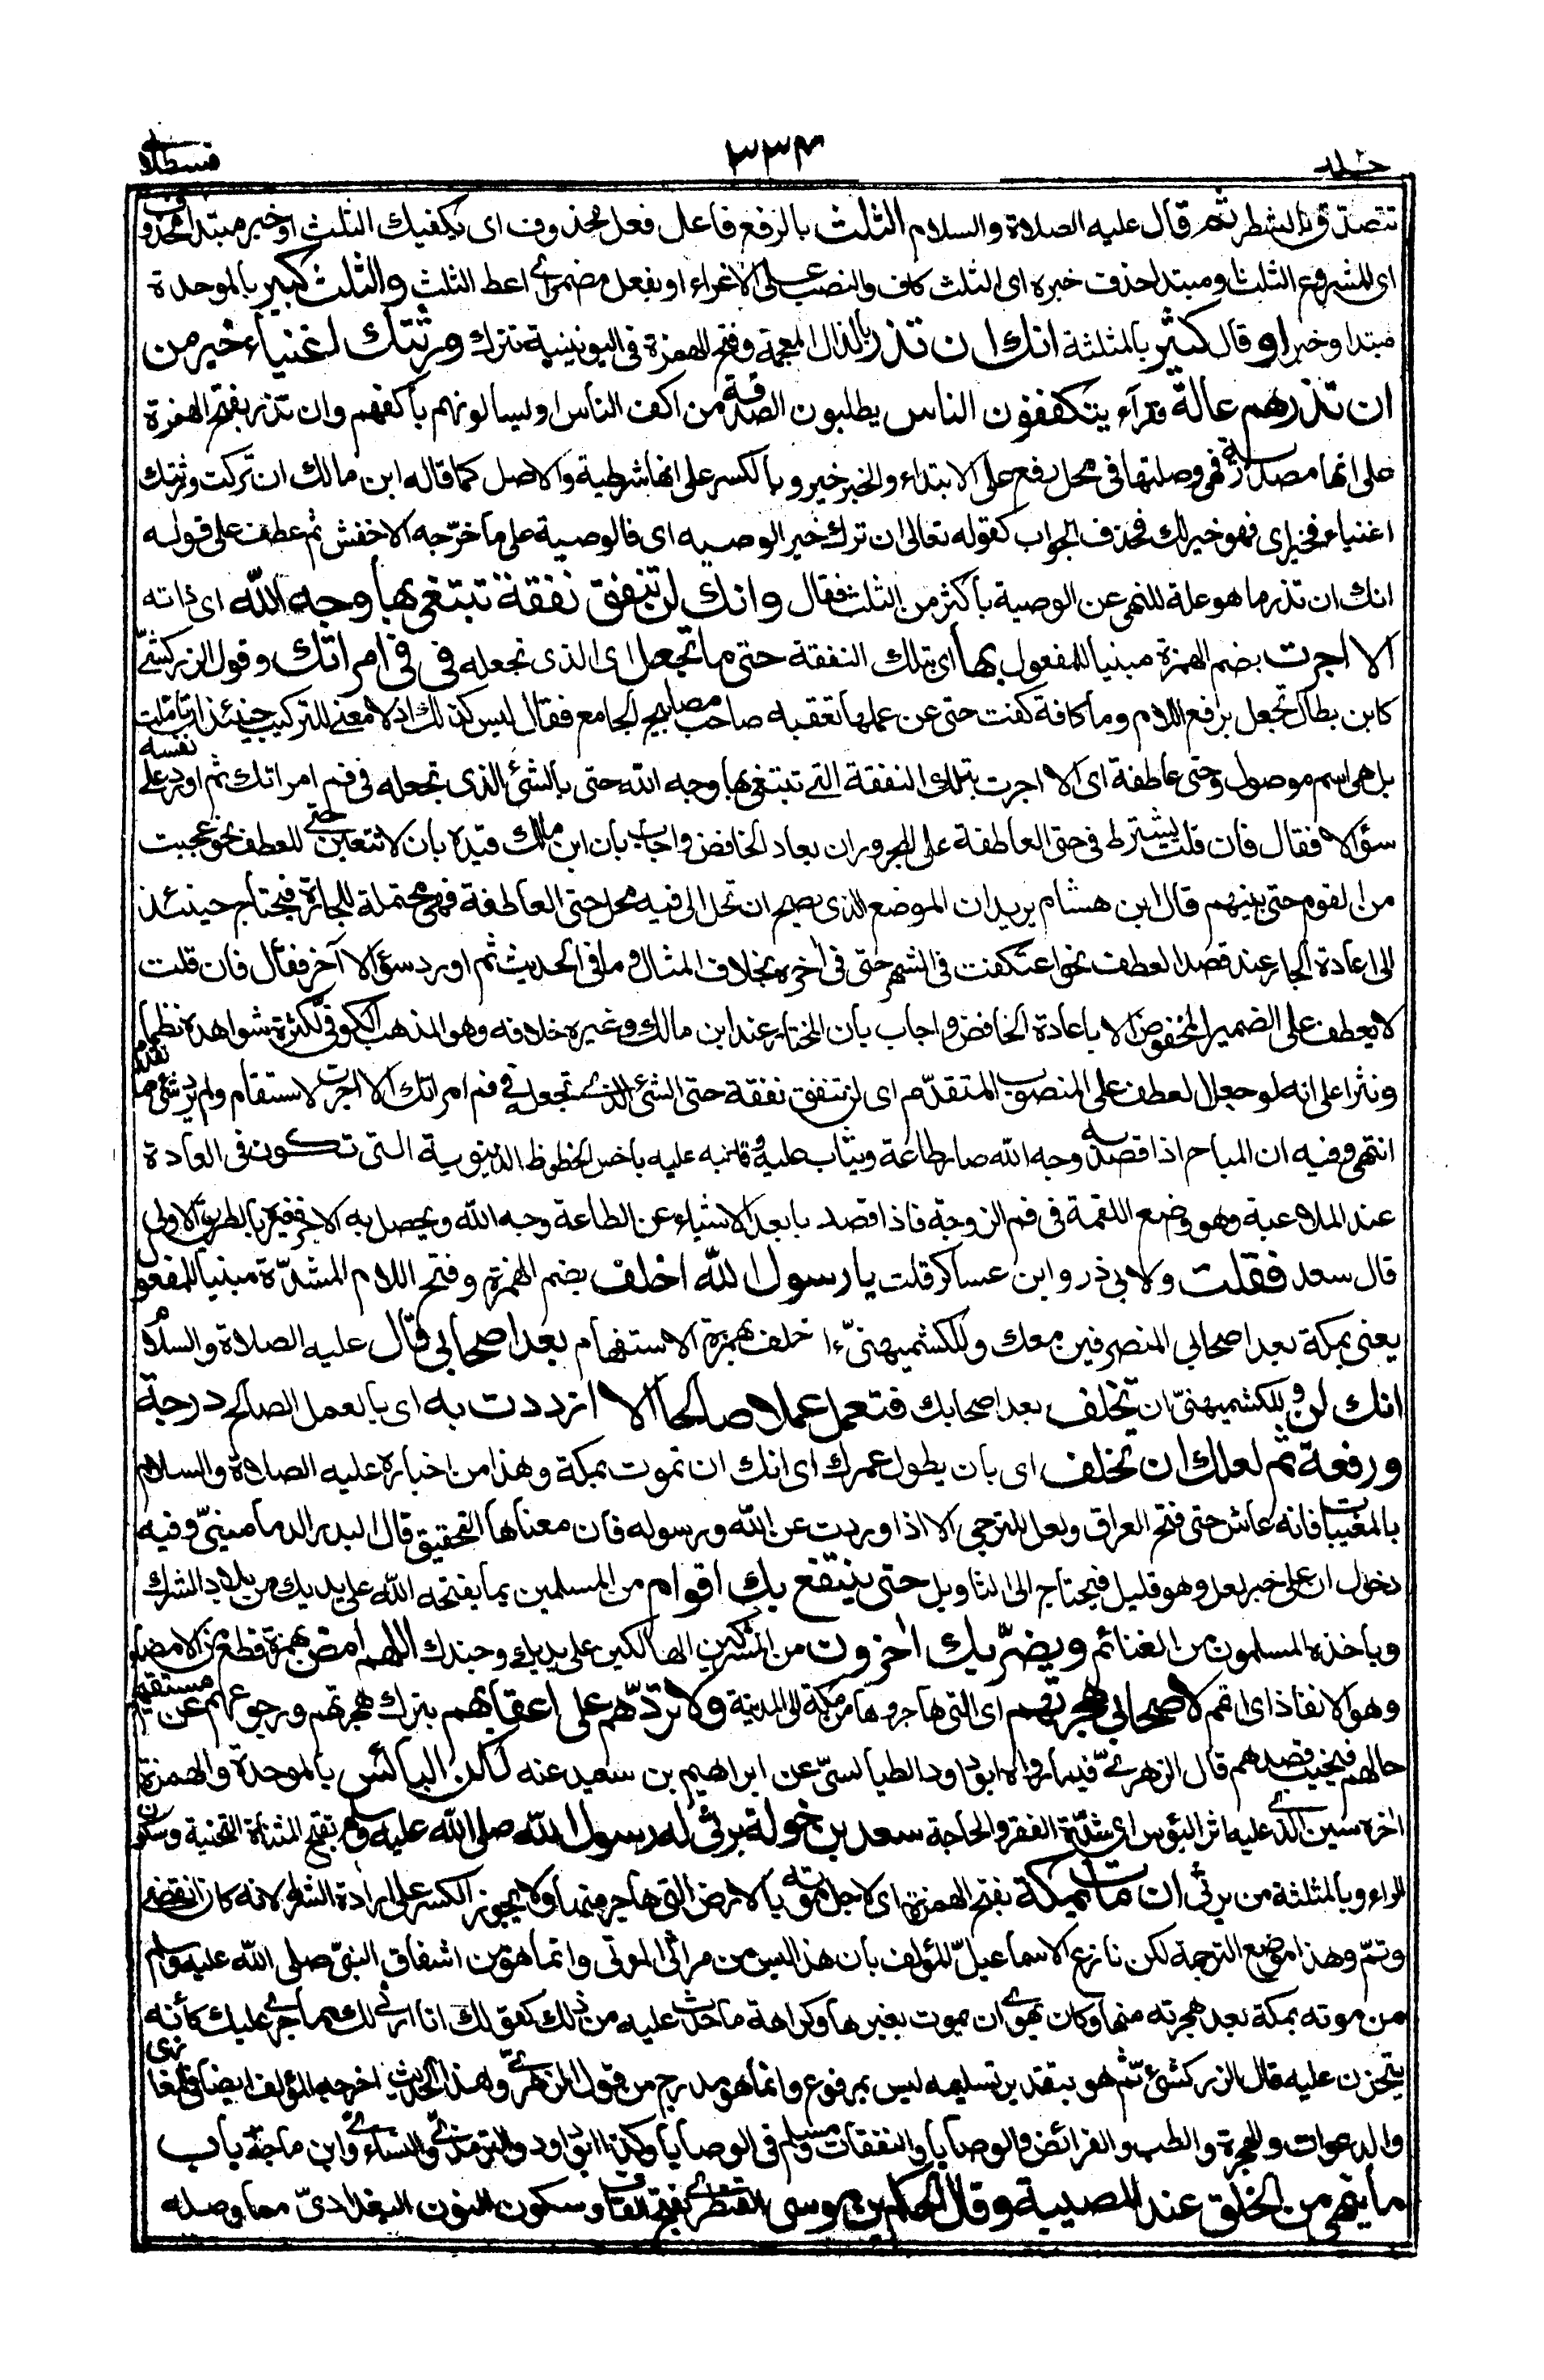 قسطلا
٣٣٤
جلد
تتصدق بالشطر ثم قال عليه الصلاة والسلام الثلث بالرفع فاعل فعل محذوف اى يكفيك الثلث او خبر مبتدا محذوف
اى المشروع الثلث او مبتدا حذف خبره اى الثلث كاف والنصب على الاغراء او بفعل مضمر اى اعط الثلث والثلث كبير بالموحدة
مبتدا وخبر او قال كثير بالمثلثة انك ان تذر بالذال المعجمة وفتح الهمزة فى اليونينية تترك ورثتك اغنياء خير من
ان تذرهم عالة فقرآء يتكففون الناس يطلبون الصدقة من اكف الناس او يسالونهم بأكفهم وان تذر بفتح الهمزة
على انها مصدرية فهى وصلتها فى محل رفع على الابتداء والخبر خير وبالكسر على انها شرطية والاصل كما قاله ابن مالك ان تركت ورثتك
اغنياء فخير اى فهو خير لك فحذف الجواب كقوله تعالى ان ترك خير الوصيه اى فالوصية على ما خرّجه الاخفش ثم عطف على قوله
انك ان تذر ما هو علة للنهى عن الوصية بأكثر من الثلث فقال وانك لن تنفق نفقة تبتغى بها وجه الله اى ذاته
الا اجرت بضم الهمزة مبنيا للمفعول بها اى بتلك النفقة حتى ما تجعل اى الذى تجعله فى فى امراتك وقول الزركشى
كابن بطال تجعل برفع اللام وما كافة كفت حتى عن عملها تعقبه صاحب مصابيح الجامع فقال ليس كذلك اذ لا معنى للتركيب حينئذ ان تأملت
بل هى اسم موصول وحتى عاطفة اى الا اجرت بتلك النفقة التى تبتغى بها وجه الله حتى بالشئ الذى تجعله فى فم امراتك ثم اورد على نفسه
سؤالا فقال فان قلت يشترط فى حتى العاطفة على المجرور ان يعاد الخافض واجاب بان ابن مالك قيده بان لا تتعين حتى للعطف نحو عجبت
من القوم حتى بنيهم قال ابن هشام يريد ان الموضع الذى يصح ان تحل الى فيه محل حتى العاطفة فهى محتملة للجارة فيحتاج حينئذ
الى اعادة الجار عند قصد العطف نحو اعتكفت فى الشهر حتى فى اخره بخلاف المثال وما فى الحديث ثم اورد سؤالا آخر فقال فان قلت
لا يعطف على الضمير المخفوض الا باعادة الخافض واجاب بان المختار عند ابن مالك وغيره خلافه وهو المذهب الكوفى لكثرة شواهده نظما
ونثرا على انه لو جعل العطف على المنصوب المتقدّم اى لن تنفق نفقة حتى الشئ الذى تجعله فى فم امراتك الا اجرت لاستقام ولم يرد شئ مما تقدم
انتهى وفيه ان المباح اذا قصد به وجه الله صار طاعة ويثاب عليه وقد نبه عليه باخس الحظوظ الدنيوية التى تكون فى العادة
عند الملاعبة وهو وضع اللقمة فى فم الزوجة فاذا قصد بابعد الاشياء عن الطاعة وجه الله ويحصل به الاجر فغيره بالطريق الاولى
قال سعد فقلت ولابى ذر وابن عساكر قلت يا رسول الله اخلف بضم الهمزة وفتح اللام المشدّدة مبنيا للمفعول
يعنى بمكة بعد اصحابى المنصرفين معك وللكشميهنىّ ءا خلف بهمزة الاستفهام بعد اصحابى قال عليه الصلاة والسلام
انك لن وللكشميهنىّ ان تخلف بعد اصحابك فتعمل عملا صالحا الا ازددت به اى بالعمل الصالح درجة
ورفعة ثم لعلك ان تخلف اى بان يطول عمرك اى انك ان تموت بمكة وهذا من اخباره عليه الصلاة والسلام
بالمغيبات فانه عاش حتى فتح العراق ولعل للترجى الا اذا وردت عن الله ورسوله فان معناها التحقيق قال البدر الدمامينىّ وفيه
دخول ان على خبر لعل وهو قليل فيحتاج الى التاويل حتى ينتفع بك اقوام من المسلمين بما يفتحه الله على يديك من بلاد الشرك
وياخذه المسلمون من الغنائم ويضرّ بك اخرون من المشركين الهالكين على يديك وجندك اللهم امض بهمزة قطع من الامضاء
وهو الانفاذ اى اتمم لاصحابى هجرتهم اى التى هاجروها من مكة الى المدينة ولا تردّهم على اعقابهم بترك هجرتهم ورجوعهم عن مستقيم
حالهم فيخيب قصدهم قال الزهرىّ فيما رواه ابو داود الطيالسىّ عن ابراهيم بن سعيد عنه لكن البائس بالموحدة والهمزة
اخره سين الذى عليه اثر البؤس اى شدّة الفقر والحاجة سعد بن خولة يرثى له رسول الله صلى الله عليه وسلم بفتح المثناة التحتية وسكون
الراء وبالمثلثة من يرثى ان مات بمكة بفتح الهمزة اى لاجل موته بالارض التى هاجر منها ولا يجوز الكسر على ارادة الشرط لانه كان انقضى
وتمّ وهذا موضع الترجمة لكن نازع الاسماعيلىّ المؤلف بان هذا ليس من مراثى الموتى وانما هو من اشفاق النبىّ صلى الله عليه وسلم
من موته بمكة بعد هجرته منها وكان يهوى ان يموت بغيرها وكراهة ما حدث عليه من ذلك كقولك انا ارثى لك مما جرى عليك كأنه
يتحزن عليه قال الزركشىّ ثم هو بتقدير تسليمه ليس بمرفوع وانما هو مدرج من قول الزهرىّ وهذا الحديث اخرجه المؤلف ايضا فى المغازى
والدعوات والهجرة والطب والفرائض والوصايا والنفقات ومسلم فى الوصايا وكذا ابو داود والترمذىّ والنساءىّ وابن ماجة باب
ما ينهى من الحلق عند المصيبة وقال الحكم بن موسى القنطرى بفتح القاف وسكون النون البغدادىّ مما وصله